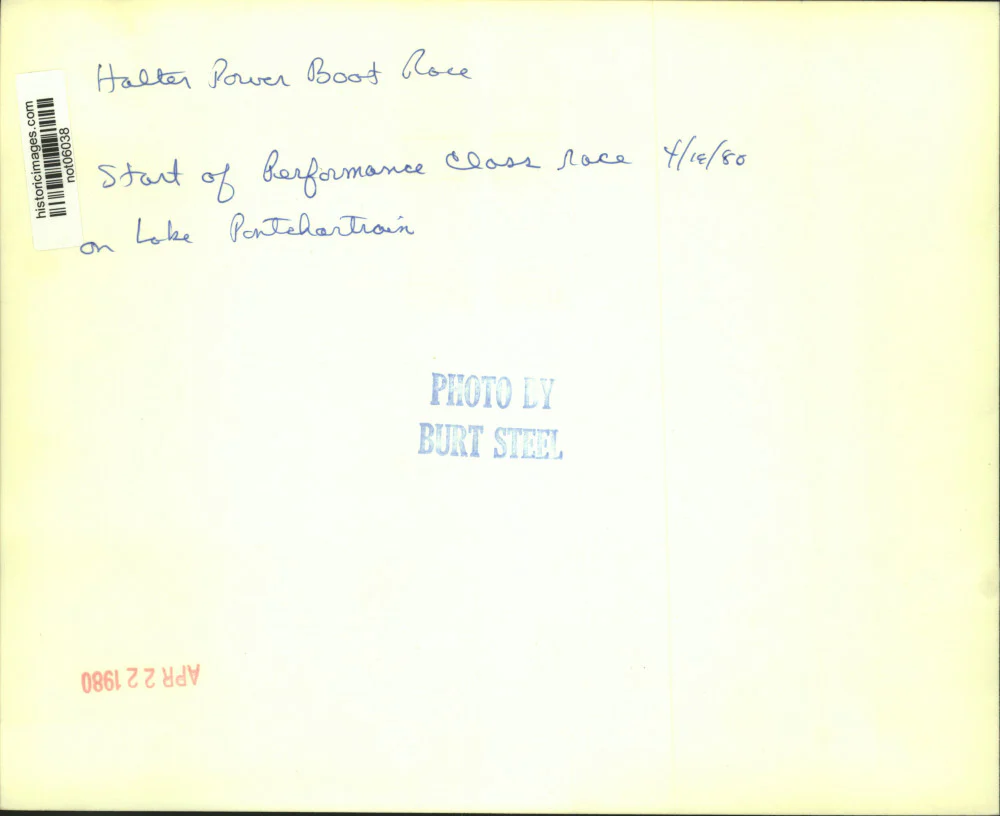 Halter Power Boat Race
Start of Performance Class race 4/19/80
on Lake Pontchartrain
historicimages.com
not06038
PHOTO BY
BURT STEEL
APR 22 1980